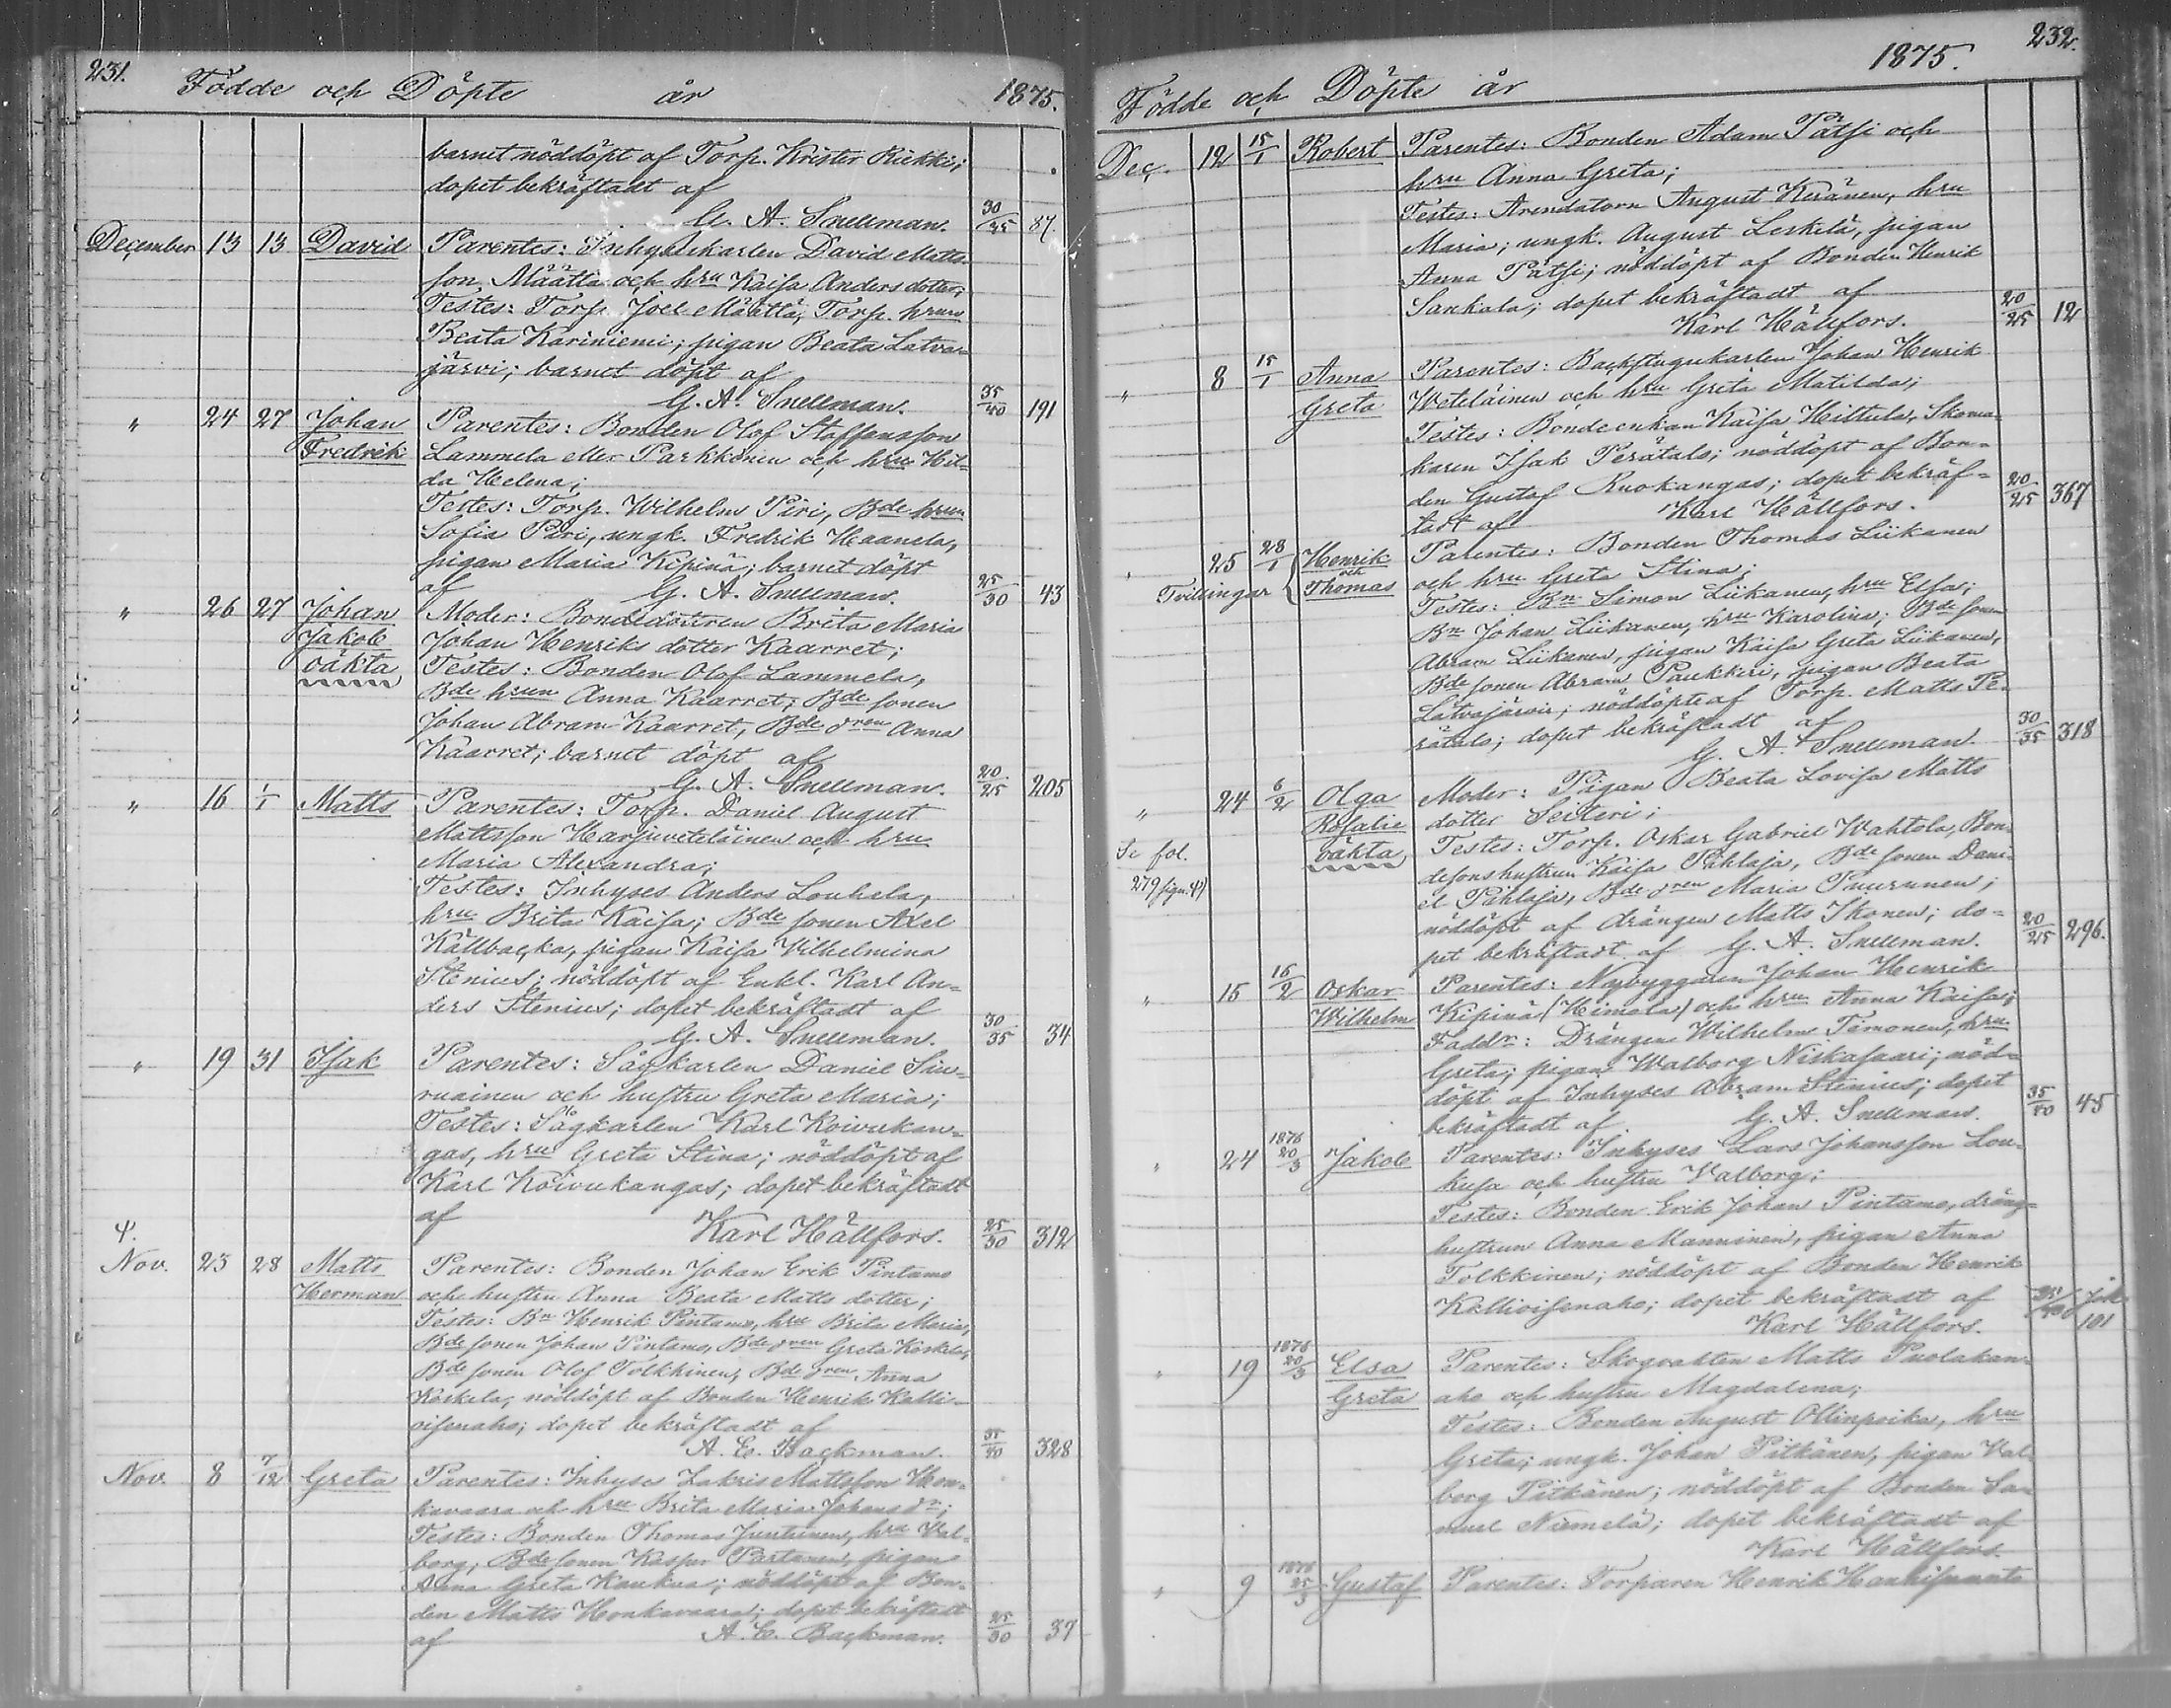 231.
Födde och Döpte år 1875.
barnet nöddöpt af Torp. Krister Riekki;
dopet bekräftadt af
G. A. Snellman. 30/35 87.
December 13 13 David Parentes: Inhyseskarlen David Matts-
son Määttä och hru Kaisa Andersdotter;
Testes: Torp. Joel Määttä, Torp. hrun
Beata Kariniemi; pigan Beata Latva-
järvi; barnet döpt af
G. A. Snellman. 35/40 191
" 24 27 Johan Parentes: Bonden Olof Staffansson
Fredrik Lammela eller Parkkonen och hru Hil-
da Helena;
Testes: Torp. Wilhelm Piri, Bde hrun
Sofia Piri, ungk. Fredrik Haanela,
pigan Maria Kipinä; barnet döpt
af G. A. Snellman. 25/30 43
" 26 27 Johan Moder: Bondedottren Brita Maria
Jakob Johan Henriks dotter Kaarret;
oäkta Testes: Bonden Olof Lammela,
Bde hrun Anna Kaarret; Bde sonen
Johan Abram Kaarret, Bde dren Anna
Kaarret; barnet döpt af
G. A. Snellman. 20/25 205
" 16 1/1 Matts Parentes: Torp. Daniel August
Mattsson Harjuveteläinen och hru
Maria Alexandra;
Testes: Inhyses Anders Louhela,
hru Brita Kaisa; Bde sonen Axel
Källbacka, pigan Kaisa Vilhelmina
Stenius; nöddöpt af Enkl. Karl An-
ders Stenius; dopet bekräftadt af
G. A. Snellman. 30/35 34
" 19 31 Isak Parentes: Sågkarlen Daniel Sin-
ruainen och hustru Greta Maria;
Testes: Sågkarlen Karl Koivukan-
gas, hru Greta Stina; nöddöpt af
Karl Koivukangas; dopet bekräftadt
af Karl Hällfors. 25/30 312
Nov. 23 28 Matts Parentes: Bonden Johan Erik Pintamo
Herman och hustru Anna Beata Matts dotter;
Testes: Bn Henrik Pintamo, hru Brita Maria,
Bde sonen Johan Pintamo, Bde dren Greta Koskela,
Bde sonen Olof Tolkkinen, Bde dren Anna
Koskela; nöddöpt af Bonden Henrik Kalli-
oisenaho; dopet bekräftadt af
A. E. Backman. 35/40 328
Nov. 8 7/12 Greta Parentes: Inhyse Zakris Mattsson Hon-
kavaara och hru Brita Maria Johans dr;
Testes: Bonden Thomas Juntunen, hru Val-
borg; Bde sonen Kasper Partanen, pigan
Anna Greta Kaukua; nöddöpt af Bon-
den Matts Honkavaara; dopet bekräftadt
af A. E. Backman. 25/30 37
232.
Födde och Döpte år 1875.
Dec. 12 15/1 Robert Parentes: Bonden Adam Pätsi och
hru Anna Greta;
Testes: Arendatorn August Keränen, hru
Maria; ungk. August Leskelä, pigan
Anna Pätsi; nöddöpt af Bonden Henrik
Sankala; dopet bekräftadt af
Karl Hällfors. 20/25 12
" 8 15/1 Anna Parentes: Backstugukarlen Johan Henrik
Greta Weteläinen och hru Greta Matilda;
Testes: Bondeenkan Kaisa Hiltula, Skoma-
karen Isak Perätalo; nöddöpt af Bon-
den Gustaf Ruokangas; dopet bekräf-
tadt af Karl Hällfors. 20/25 367
" 25 28/1 Henrik Parentes: Bonden Thomas Liikanen
Tvillingar och Thomas och hru Greta Stina;
Testes: Bn Simon Liikanen, hru Elsa;
Bn Johan Liikanen, hru Karolina; Bde sonen
Abram Liikanen, pigan Kaisa Greta Liikanen,
Bde sonen Abram Paukkeri, pigan Beata
Latvajärvi; nöddöpte af Torp. Matts Pe-
rätalo; dopet bekräftadt af
G. A. Snellman. 30/35 318
" 24 6/2 Olga Moder: Pigan Beata Lovisa Matts
Rosalie dotter Seiteri;
Se fol. oäkta Testes: Torp. Oskar Gabriel Wahtola, Bon-
279 desonshustrun Kaisa Pihlaja, Bde sonen Dani-
el Pihlaja, Bde dren Maria Puurunen;
nöddöpt af drängen Matts Ikonen; do-
pet bekräftadt af G. A. Snellman. 20/25 296.
" 15 16/2 Oskar Parentes: Nybyggaren Johan Henrik
Wilhelm Kipinä (Heimola) och hru Anna Kaisa;
Faddr: Drängen Wilhelm Timonen, hru
Greta; pigan Walborg Niskasaari; nöd-
döpt af Inhyses Abram Stenius; dopet
bekräftadt af G. A. Snellman. 35/40 45
" 24 1876 20/3 Jakob Parentes: Inhyses Lars Johansson Lou-
kusa och hustru Valborg;
Testes: Bonden Erik Johan Pintamo, dräng-
hustrun Anna Manninen, pigan Anna
Tolkkinen; nöddöpt af Bonden Henrik
Kallioisenaho; dopet bekräftadt af
Karl Hällfors. 35/40 101
" 19 1876 20/3 Elsa Parentes: Skogvakten Matts Puolakan-
Greta aho och hustru Magdalena;
Testes: Bonden August Ollinpoika, hru
Greta; ungk. Johan Pitkänen, pigan Val-
borg Pitkänen; nöddöpt af Bonden Sa-
muel Niemelä; dopet bekräftadt af
Karl Hällfors.
" 9 1876 25/3 Gustaf Parentes: Torparen Henrik Hanhisuanto